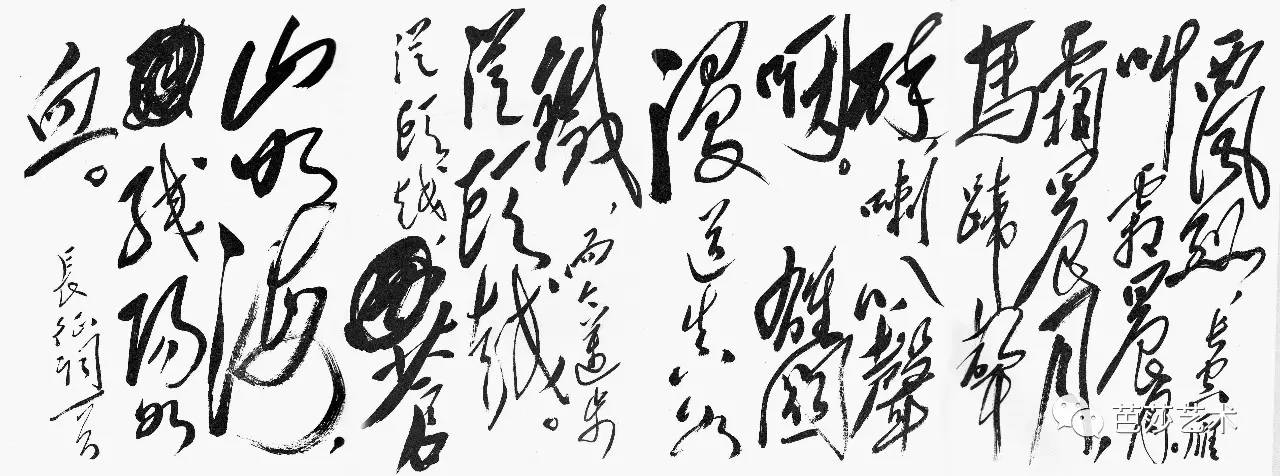 西風烈、長空雁
叫霜晨月。
霜晨月、
馬蹄聲
碎、喇叭聲
咽。雄關
漫道真如
鐵、而今邁步
從頭越。
從頭越、蒼
山如海、
残陽如
血。
長征詞一首
芭莎艺术